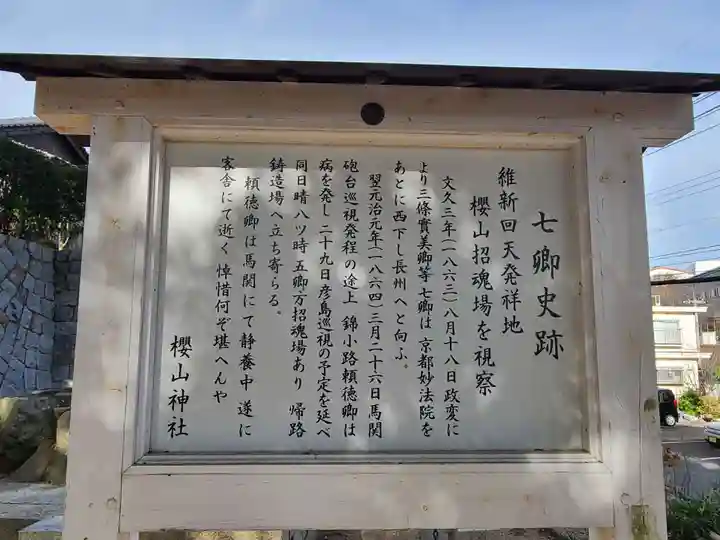 七卿史跡
維新回天発祥地
櫻山招魂場を視察
文久三年(一八六三)八月十八日政変に
より三條實美卿等七卿は京都妙法院を
あとに西下し長州へと向ふ。
翌元治元年(一八六四)三月二十六日馬関
砲台巡視発程の途上 錦小路頼徳卿は
病を発し 二十九日彦島巡視の予定を延べ
同日晴八ツ時 五卿方招魂場あり 帰路
鋳造場へ立ち寄らる。
頼徳卿は馬関にて静養中 遂に
客舎にて逝く 悼惜何ぞ堪へんや
櫻山神社